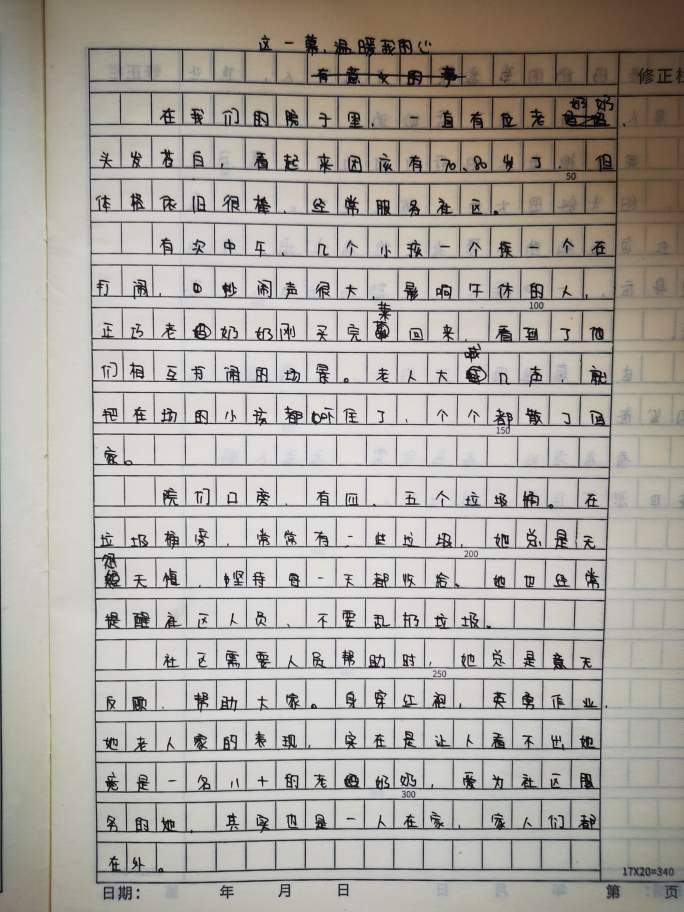 这一幕,温暖我的心
有意义的事 修正栏
在我们的院子里,一直有位老奶奶,
头发苍白,看起来因该有70、80岁了,但 50
体格依旧很棒,经常服务社区。
有次中午,几个小孩一个挨一个在
打闹,吵闹声很大,影响午休的人, 100
正巧老奶奶刚买完菜回来,看到了他
们相互打闹的场景。老人大喊几声,就
把在场的小孩都吓住了,个个都散了回 150
家。
院们口旁,有四、五个垃圾桶。在
垃圾桶旁,常常有一些垃圾,她总是无 200
怨无悔,坚持每一天都收给。她也经常
提醒社区人员,不要乱扔垃圾。
社区需要人员帮助时,她总是意无 250
反顾,帮助大家。身穿红袍,英勇作业,
她老人家的表现,实在是让人看不出她
竟是一名八十的老奶奶,爱为社区服 300
务的她,其实也是一人在家,家人们都
在外。
17X20=340
日期: 年 月 日 第 页